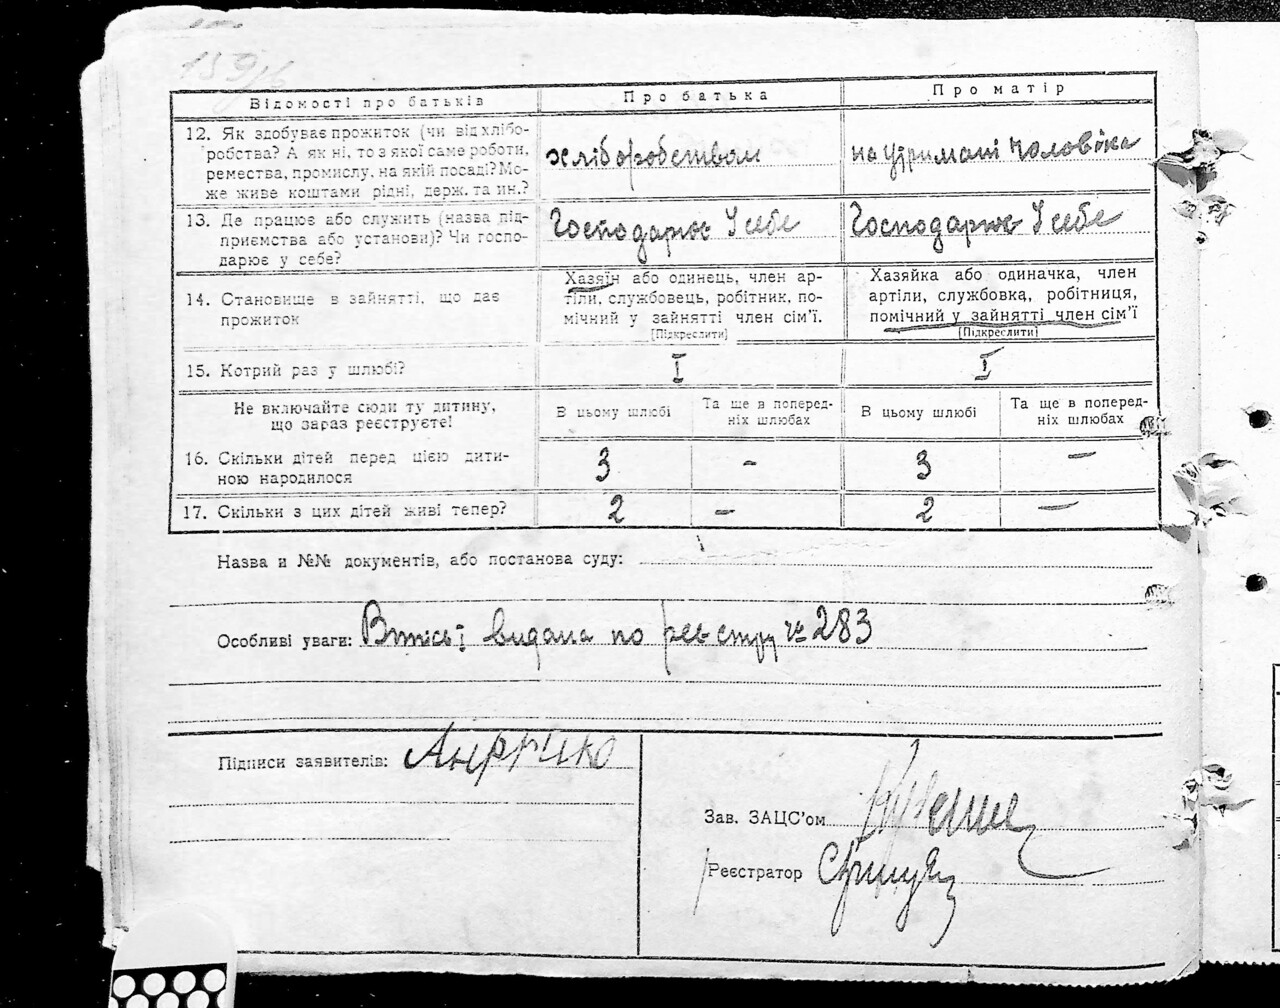 Відомості про батьків
Про батька
Про матір
12. Як здобуває прожиток (чи від хлібо-
робства? А як ні, то з якої саме роботи,
ремества, промислу, на якій посаді? Мо-
же живе коштами рідні, держ. та ин.?
хліборобством
на утримані чоловіка
13. Де працює або служить (назва під-
приємства або установи)? Чи госпо-
дарює у себе?
Господарює У себе
Господарює У себе
14. Становище в зайнятті, що дає
прожиток
Хазяїн або одинець, член ар-
тіли, службовець, робітник, по-
мічний у зайнятті член сім'ї.
[Підкреслити]
Хазяйка або одиначка, член
артіли, службовка, робітниця,
помічний у зайнятті член сім'ї
[Підкреслити]
15. Котрий раз у шлюбі?
I
I
Не включайте сюди ту дитину,
що зараз реєструєте!
В цьому шлюбі
Та ще в поперед-
ніх шлюбах
В цьому шлюбі
Та ще в поперед-
ніх шлюбах
16. Скільки дітей перед цією дити-
ною народилося
3 - 3 -
17. Скільки з цих дітей живі тепер?
2 - 2 -
Назва и №№ документів, або постанова суду:
Особливі уваги: видана по реєстру № 283
Підписи заявителів:
Зав. ЗАЦС'ом
Реєстратор